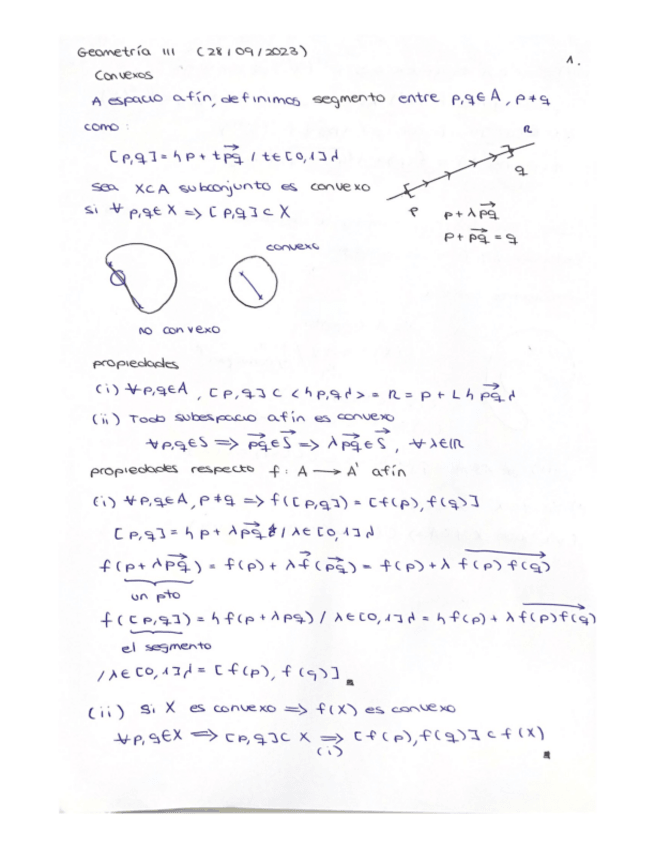 Geometría III (28/09/2023)
1.
Convexos
A espacio afín, definimos segmento entre p,q∈A, p≠q
como:
[p,q] = {p + t\overrightarrow{pq} / t∈[0,1]}
Sea X⊂A subconjunto es convexo
si ∀p,q∈X ⇒ [p,q]⊂X
R
q
p
p+λ\overrightarrow{pq}
p+\overrightarrow{pq} = q
convexo
no convexo
propiedades
(i) ∀p,q∈A, [p,q] ⊂ <{p,q}> = R = p + L{\overrightarrow{pq}}
(ii) Todo subespacio afín es convexo
∀p,q∈S ⇒ \overrightarrow{pq}∈\overrightarrow{S} ⇒ λ\overrightarrow{pq}∈\overrightarrow{S}, ∀λ∈ℝ
propiedades respecto f: A ⟶ A' afín
(i) ∀p,q∈A, p≠q ⇒ f([p,q]) = [f(p), f(q)]
[p,q] = {p + λ\overrightarrow{pq} / λ∈[0,1]}
f(p+λ\overrightarrow{pq}) = f(p) + λ\overrightarrow{f}(\overrightarrow{pq}) = f(p) + λ \overrightarrow{f(p)f(q)}
un pto
f([p,q]) = {f(p+λpq) / λ∈[0,1]} = {f(p) + λ\overrightarrow{f(p)f(q)}
el segmento
/λ∈[0,1]} = [f(p), f(q)] ∎
(ii) Si X es convexo ⇒ f(X) es convexo
∀p,q∈X ⇒ [p,q]⊂X ⇒ [f(p), f(q)]⊂f(X)
(i)
∎